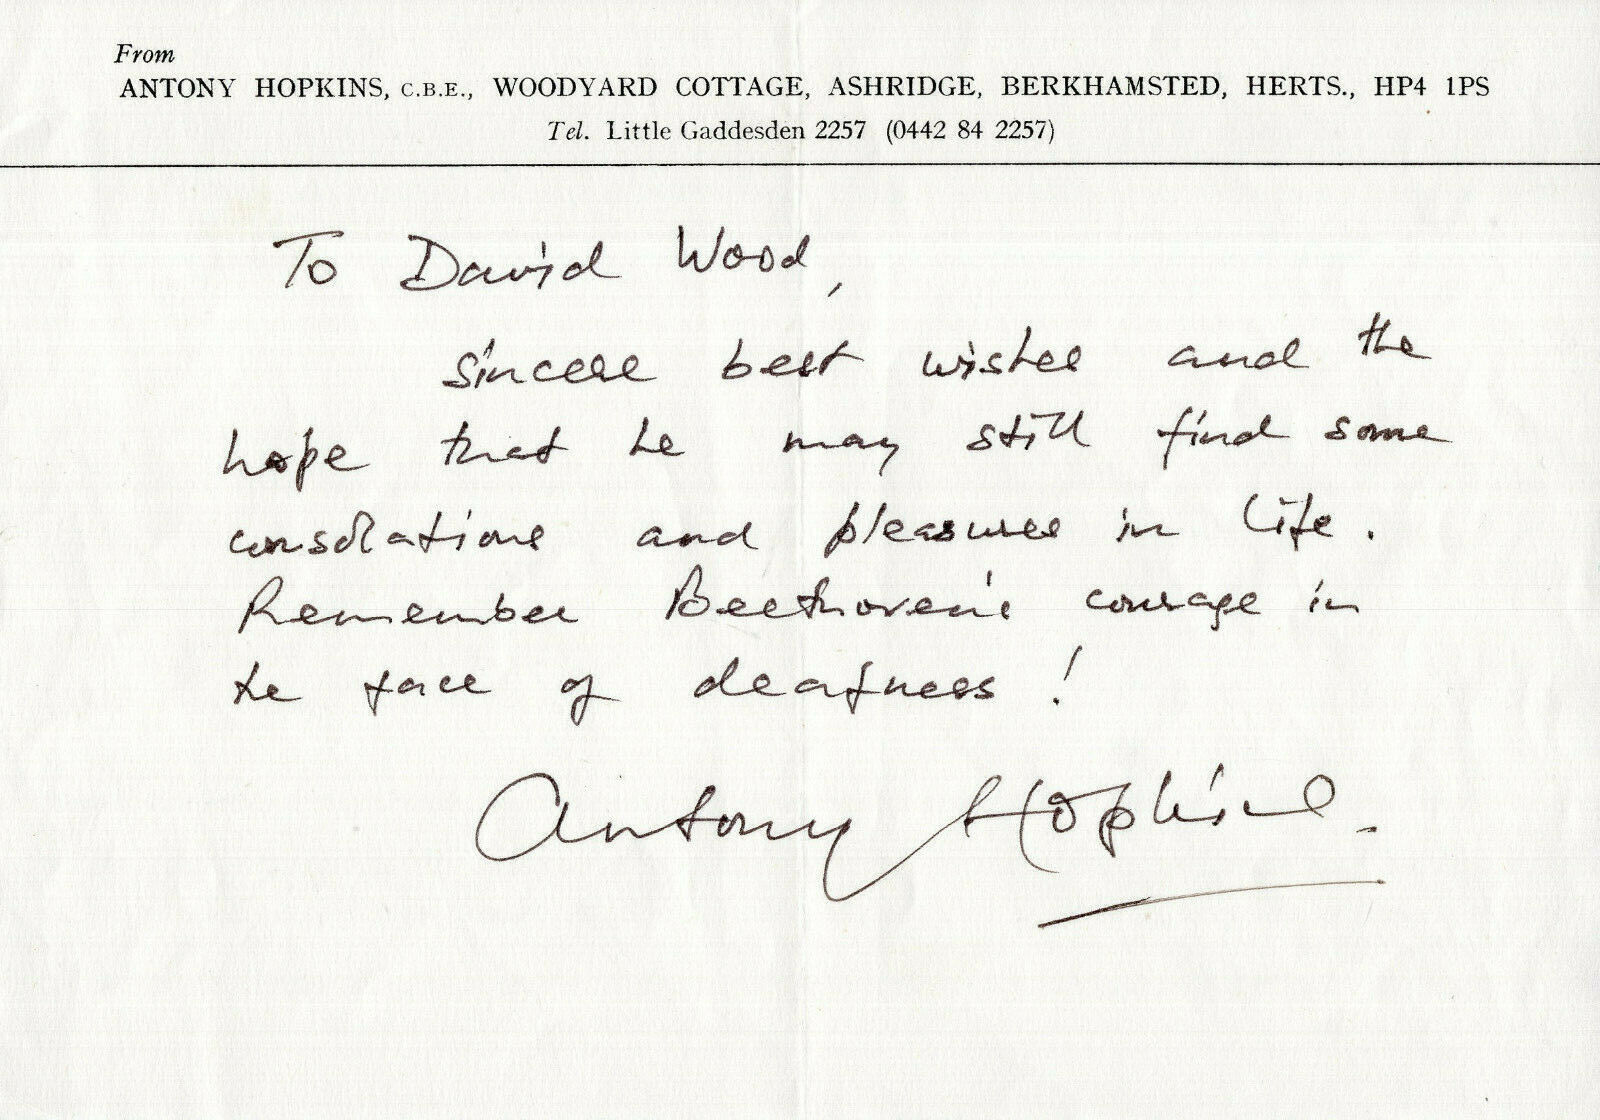 From
ANTONY HOPKINS, C.B.E., WOODYARD COTTAGE, ASHRIDGE, BERKHAMSTED, HERTS., HP4 1PS
Tel. Little Gaddesden 2257 (0442 84 2257)
To David Wood,
sincere best wishes and the
hope that he may still find some
consolations and pleasures in life.
Remember Beethoven's courage in
the face of deafness!
Antony Hopkins.